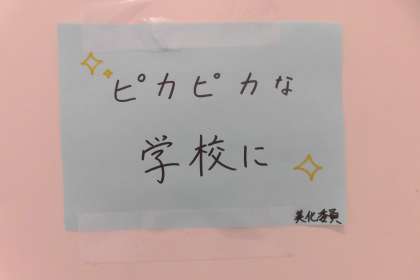 ピカピカな
学校に
美化委員